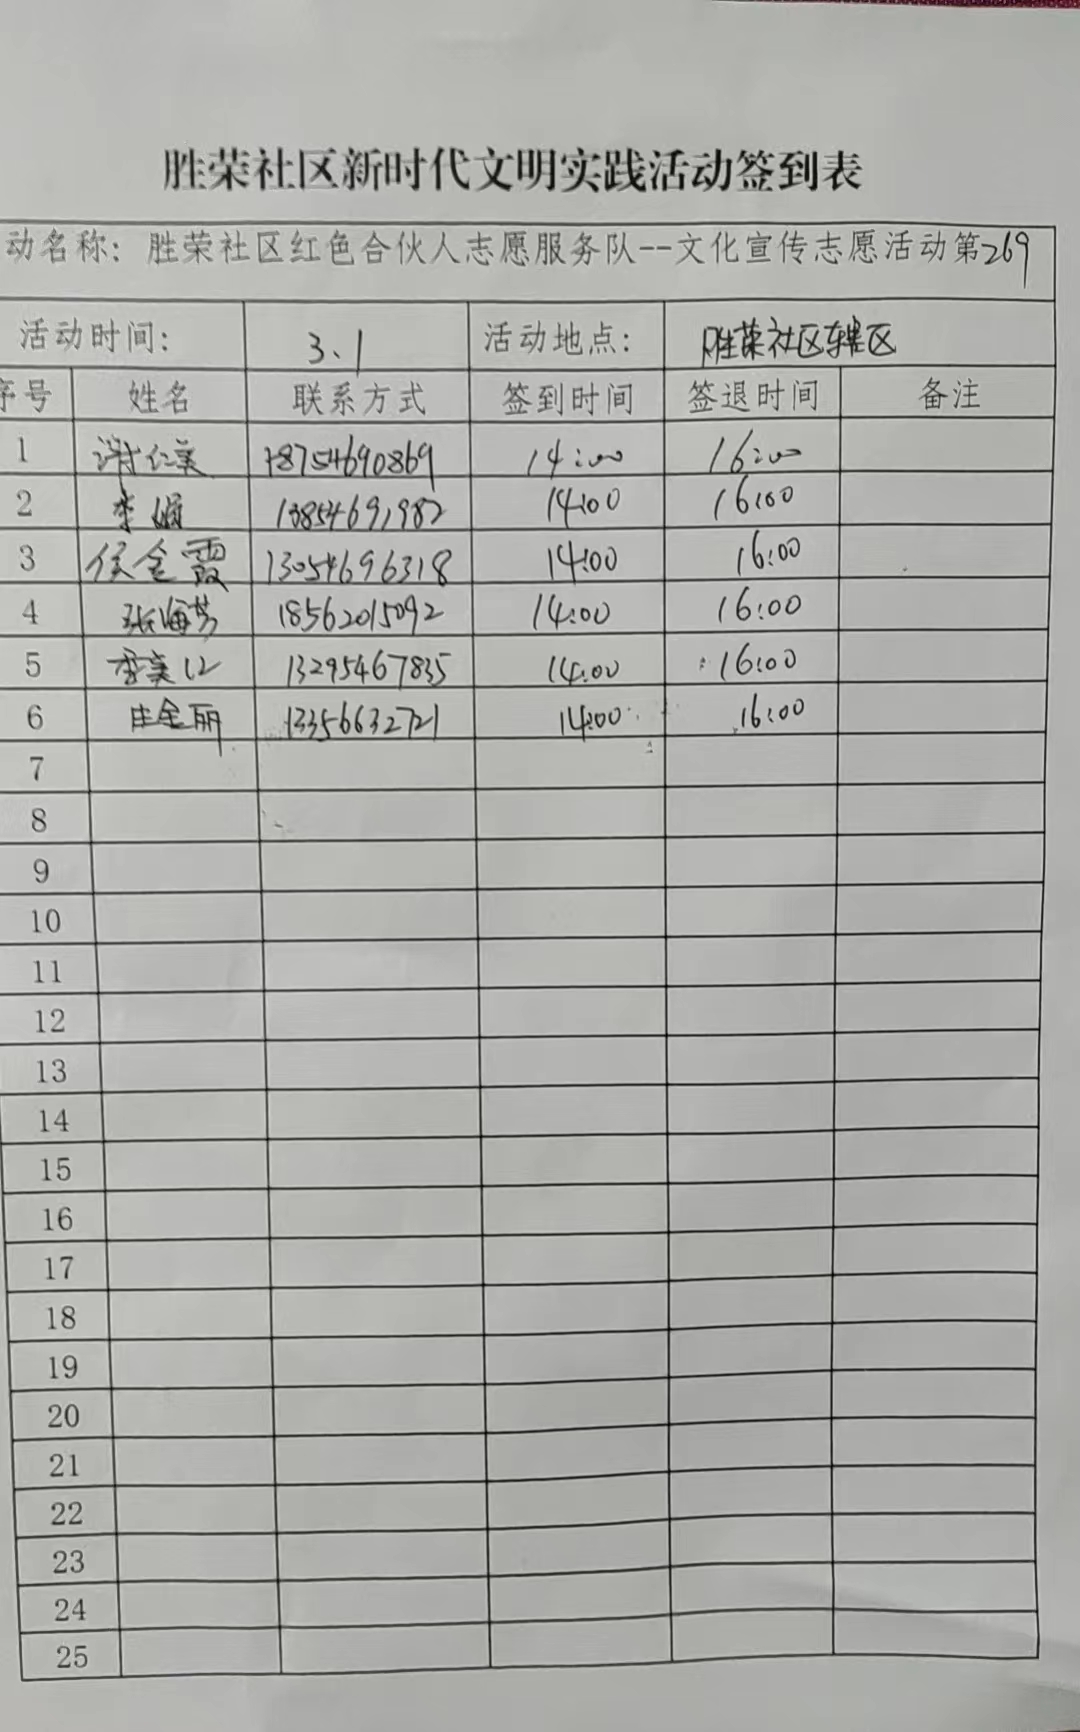 胜荣社区新时代文明实践活动签到表
动名称：胜荣社区红色合伙人志愿服务队--文化宣传志愿活动第269
活动时间： 3.1 活动地点： 胜荣社区辖区
序号 姓名 联系方式 签到时间 签退时间 备注
1 谢仁美 18754690869 14:00 16:00
2 李娟 13854691982 14:00 16:00
3 侯金霞 13054696318 14:00 16:00
4 张海芳 18562015092 14:00 16:00
5 李美江 13295467835 14:00 16:00
6 金丽 13356632721 14:00 16:00
7
8
9
10
11
12
13
14
15
16
17
18
19
20
21
22
23
24
25